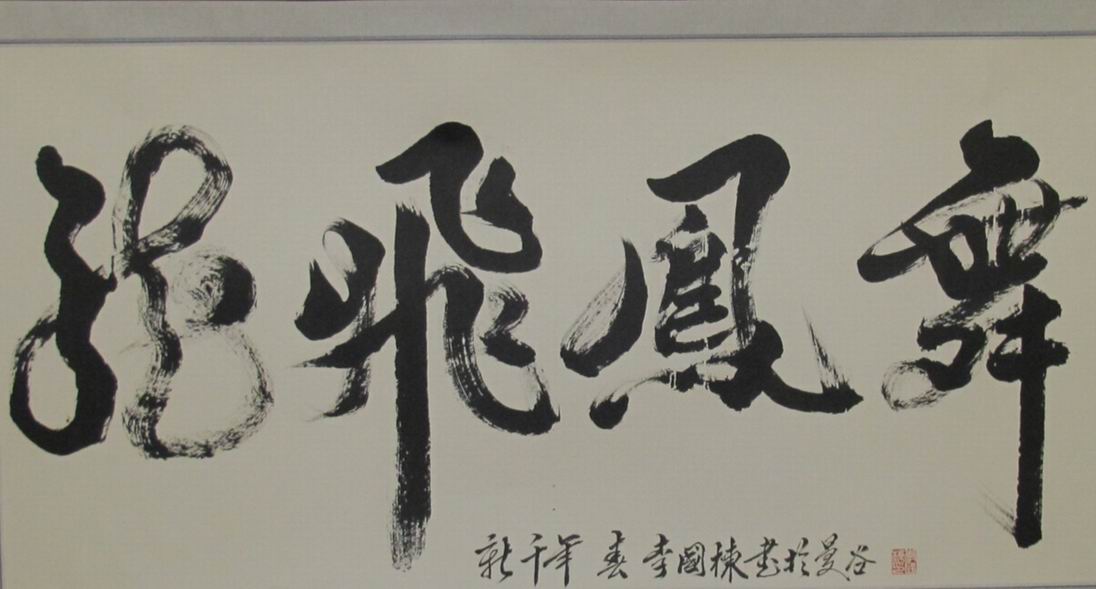 龍飛鳳舞
新千年 春 李國棟書於曼谷